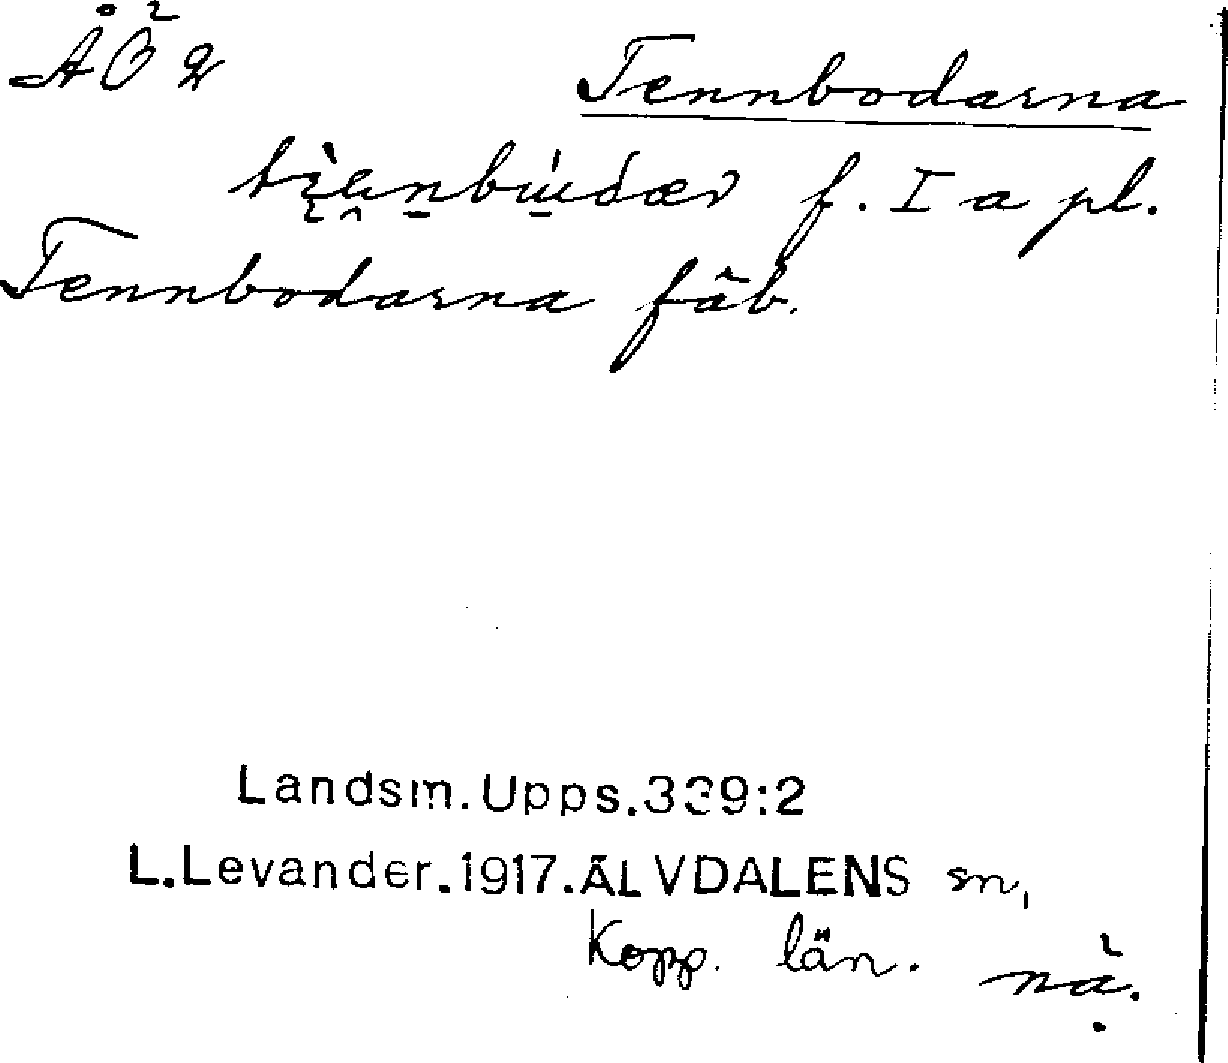 Tennbodarna
f. I a pl.
Tennbodarna fäb.
Landsm.Upps.339:2
L.Levander.1917.ÄLVDALENS sn,
Kopp. län.